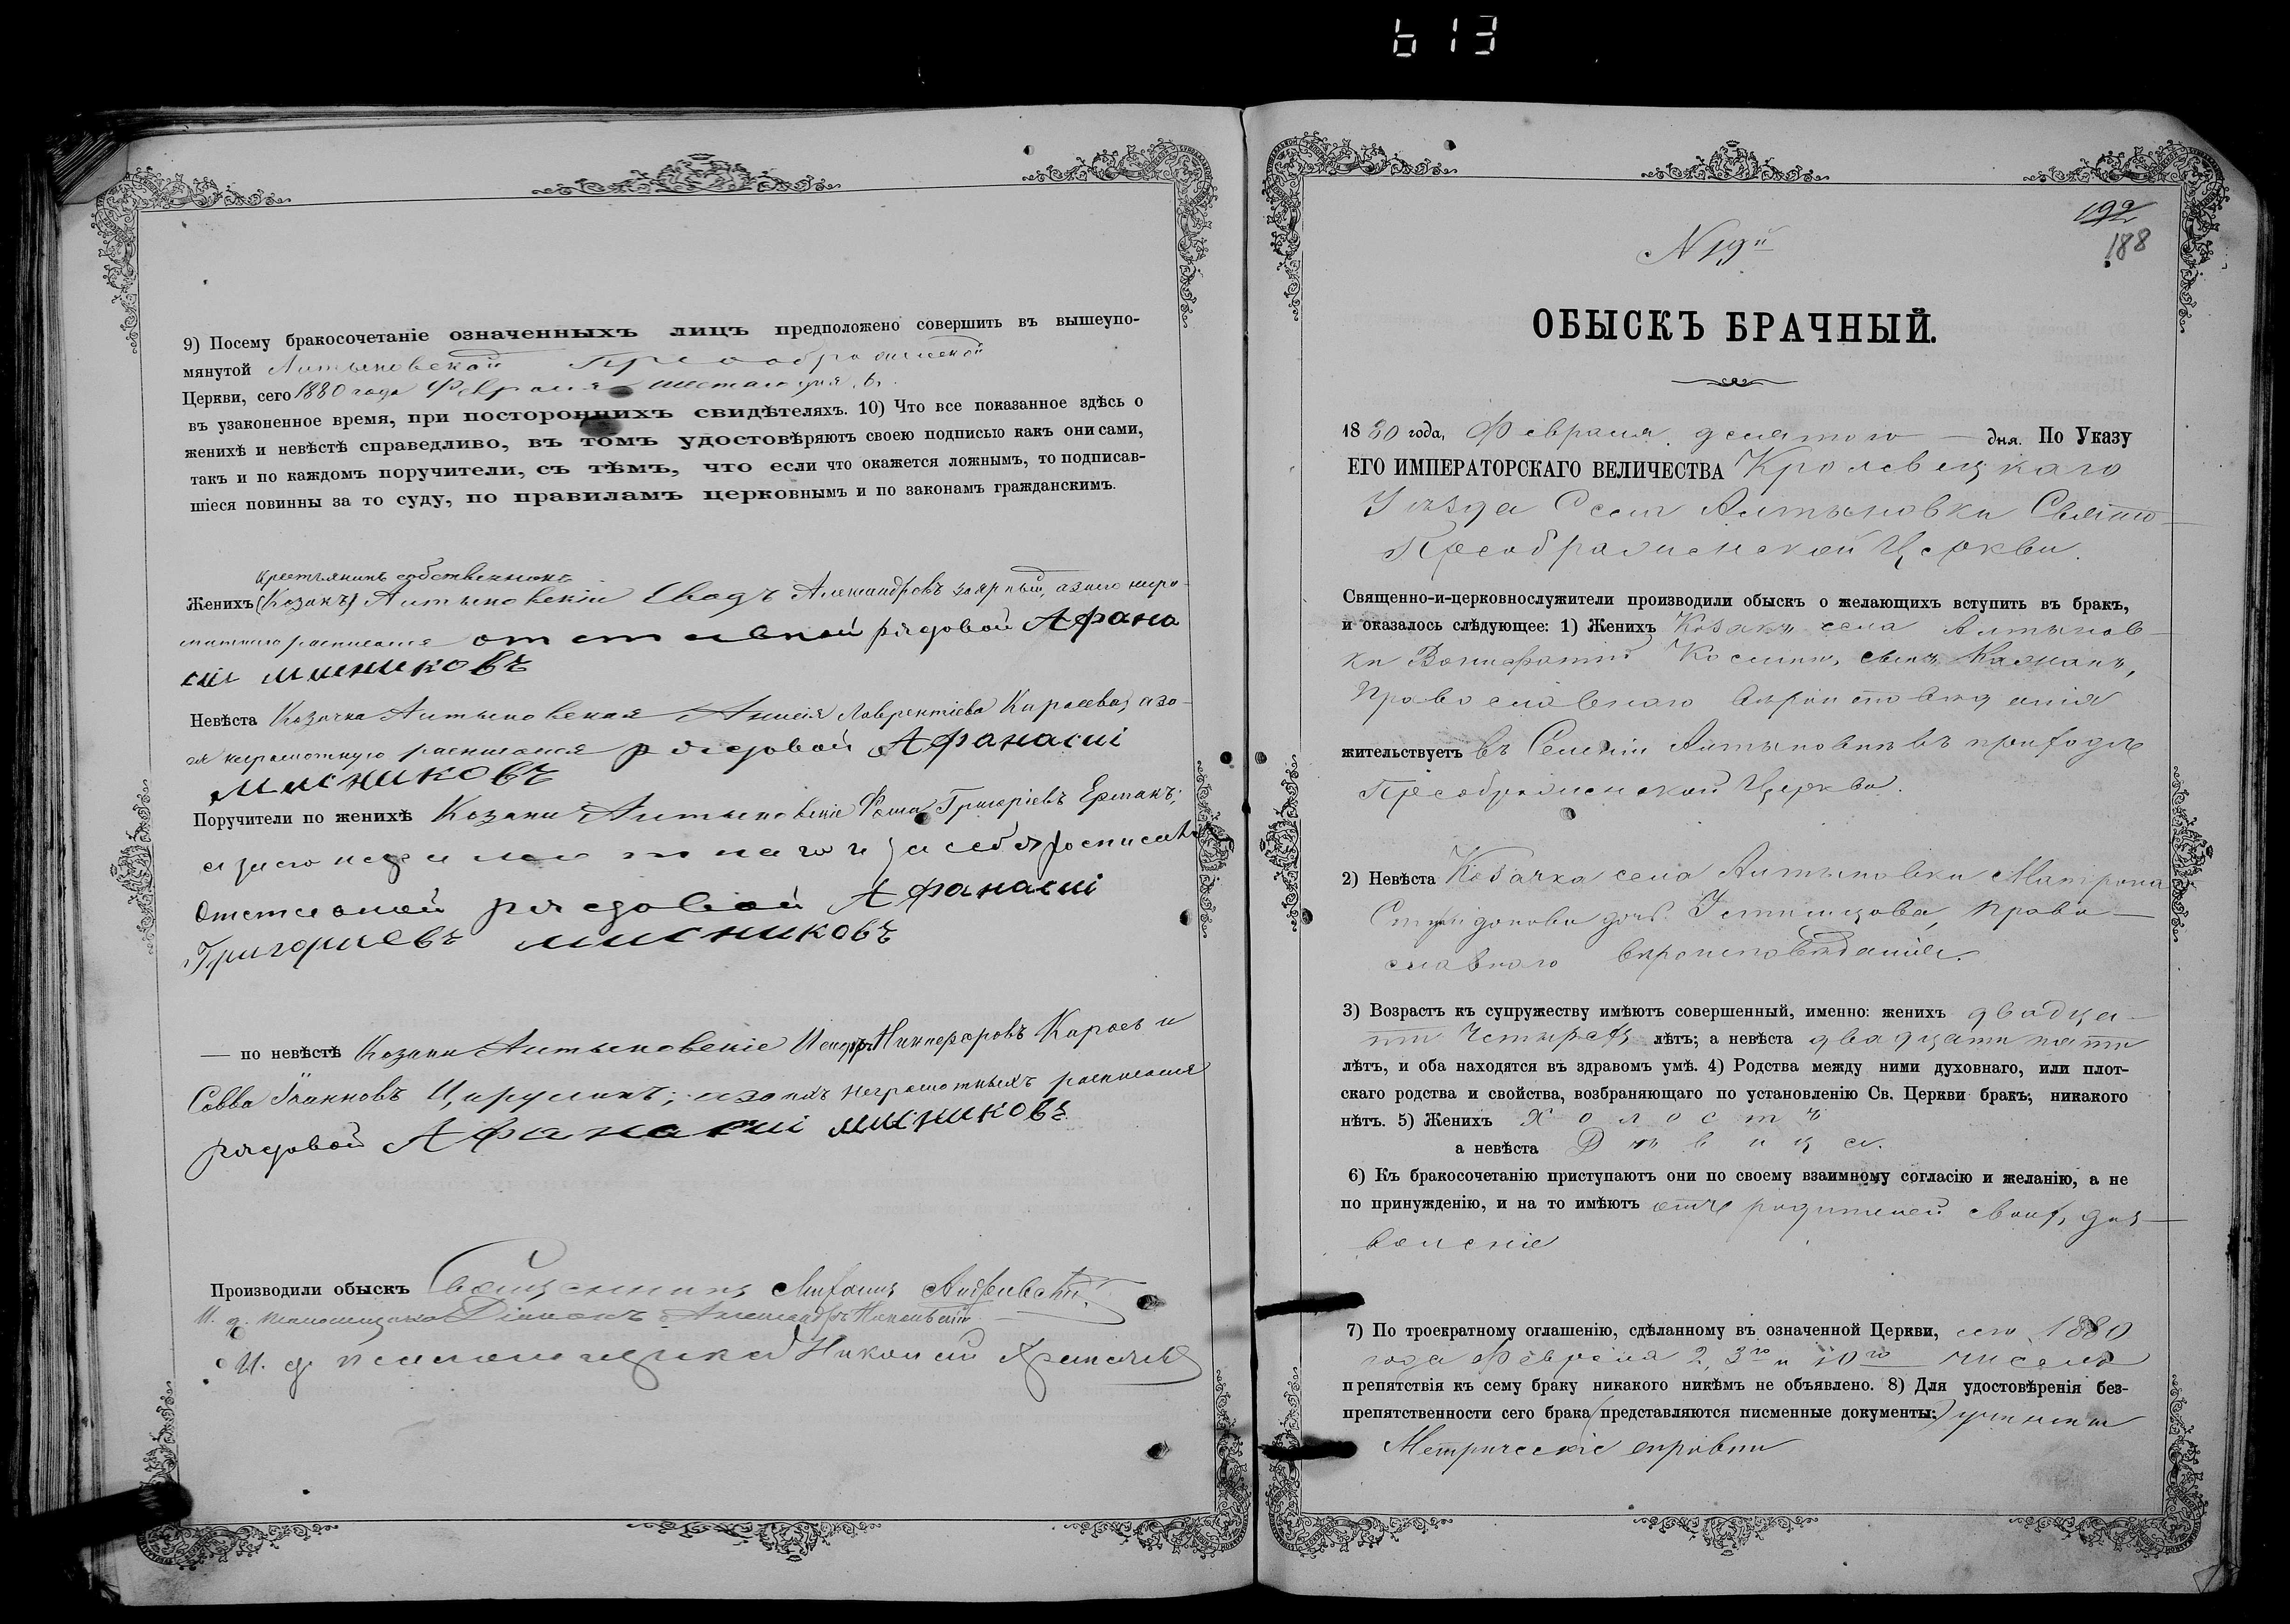 613
9) Посему бракосочетаніе означенныхъ лицъ предположено совершить въ вышеупо-
мянутой Алтыновской Преображенской
Церкви, сего 1880 года Февраля шестаго дня, 6,
въ узаконенное время, при постороннихъ свидѣтеляхъ. 10) Что все показанное здѣсь о
женихѣ и невѣстѣ справедливо, въ томъ удостовѣряютъ своею подписью какъ они сами,
такъ и по каждомъ поручители, съ тѣмъ, что если что окажется ложнымъ, то подписав-
шіеся повинны за то суду, по правиламъ церковнымъ и по законамъ гражданскимъ.
крестьянинъ собственникъ
Женихъ (Козакъ) Алтыновскій Александровъ а за него негра-
мотнаго росписался отставной рядовой Афана
сій Мисниковъ
Невѣста Козачка Алтыновская Анисія Лаврентіева Кироева, а за
ея неграмотную росписался рядовой Афанасій
Мисниковъ
Поручители по женихѣ Козаки Алтыновскіе Фома Григоріевъ Ермакъ;
за себя росписался
Отставной рядовой Афанасій
Григориевъ Мисниковъ
— по невѣстѣ Козаки Алтыновскіе Никифоровъ Кароев и
Савва Іоанновъ Цирулик; а за нихъ неграмотныхъ росписался
рядовой Афанасий Мисниковъ
Производили обыскъ Священникъ
И. д. псаломщика Діаконъ Александръ
И. д. псаломщика Николай
192
188
N 19й
ОБЫСКЪ БРАЧНЫЙ.
1880 года, Февраля десятого — дня. По Указу
ЕГО ИМПЕРАТОРСКАГО ВЕЛИЧЕСТВА Кролевецкаго
Уѣзда Села Алтыновки Свято-
Преображенской Церкви.
Священно-и-церковнослужители производили обыскъ о желающихъ вступить въ бракъ,
и оказалось слѣдующее: 1) Женихъ Козакъ села Алтынов-
ки Вонифатій Косминъ сынъ
Православнаго вѣроисповѣданія
жительствуетъ въ Селеніи Алтыновкѣ въ приходѣ
Преображенской Церкви.
2) Невѣста Козачка села Алтыновки Матрона
Спиридонова дочь Устимцова, Право-
славнаго вѣроисповѣданія.
3) Возрастъ къ супружеству имѣютъ совершенный, именно: женихъ двадца-
ти четырехъ лѣтъ; а невѣста двадцати пяти
лѣтъ, и оба находятся въ здравомъ умѣ. 4) Родства между ними духовнаго, или плот-
скаго родства и свойства, возбраняющаго по установленію Св. Церкви бракъ, никакого
нѣтъ. 5) Женихъ Холостъ
а невѣста Дѣвица.
6) Къ бракосочетанію приступаютъ они по своему взаимному согласію и желанію, а не
по принужденію, и на то имѣютъ отъ родителей своих доз-
воленіе
7) По троекратному оглашенію, сдѣланному въ означенной Церкви, сего 1880
года Февраля 2, 3го и 10го числа
препятствія къ сему браку никакого никѣмъ не объявлено. 8) Для удостовѣренія без-
препятственности сего брака (представляются писменные документы:) учинены
Метрическіе справки